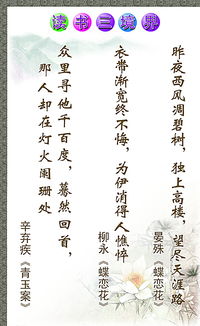 读书三境界
昨夜西风凋碧树，独上高楼，望尽天涯路
晏殊《蝶恋花》
衣带渐宽终不悔，为伊消得人憔悴
柳永《蝶恋花》
众里寻他千百度，蓦然回首，
那人却在灯火阑珊处
辛弃疾《青玉案》